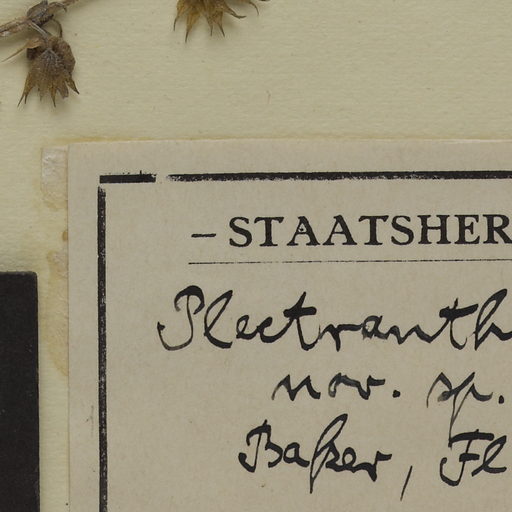 – STAATSHER
Plectranth
nov. sp.
Baker, Fl